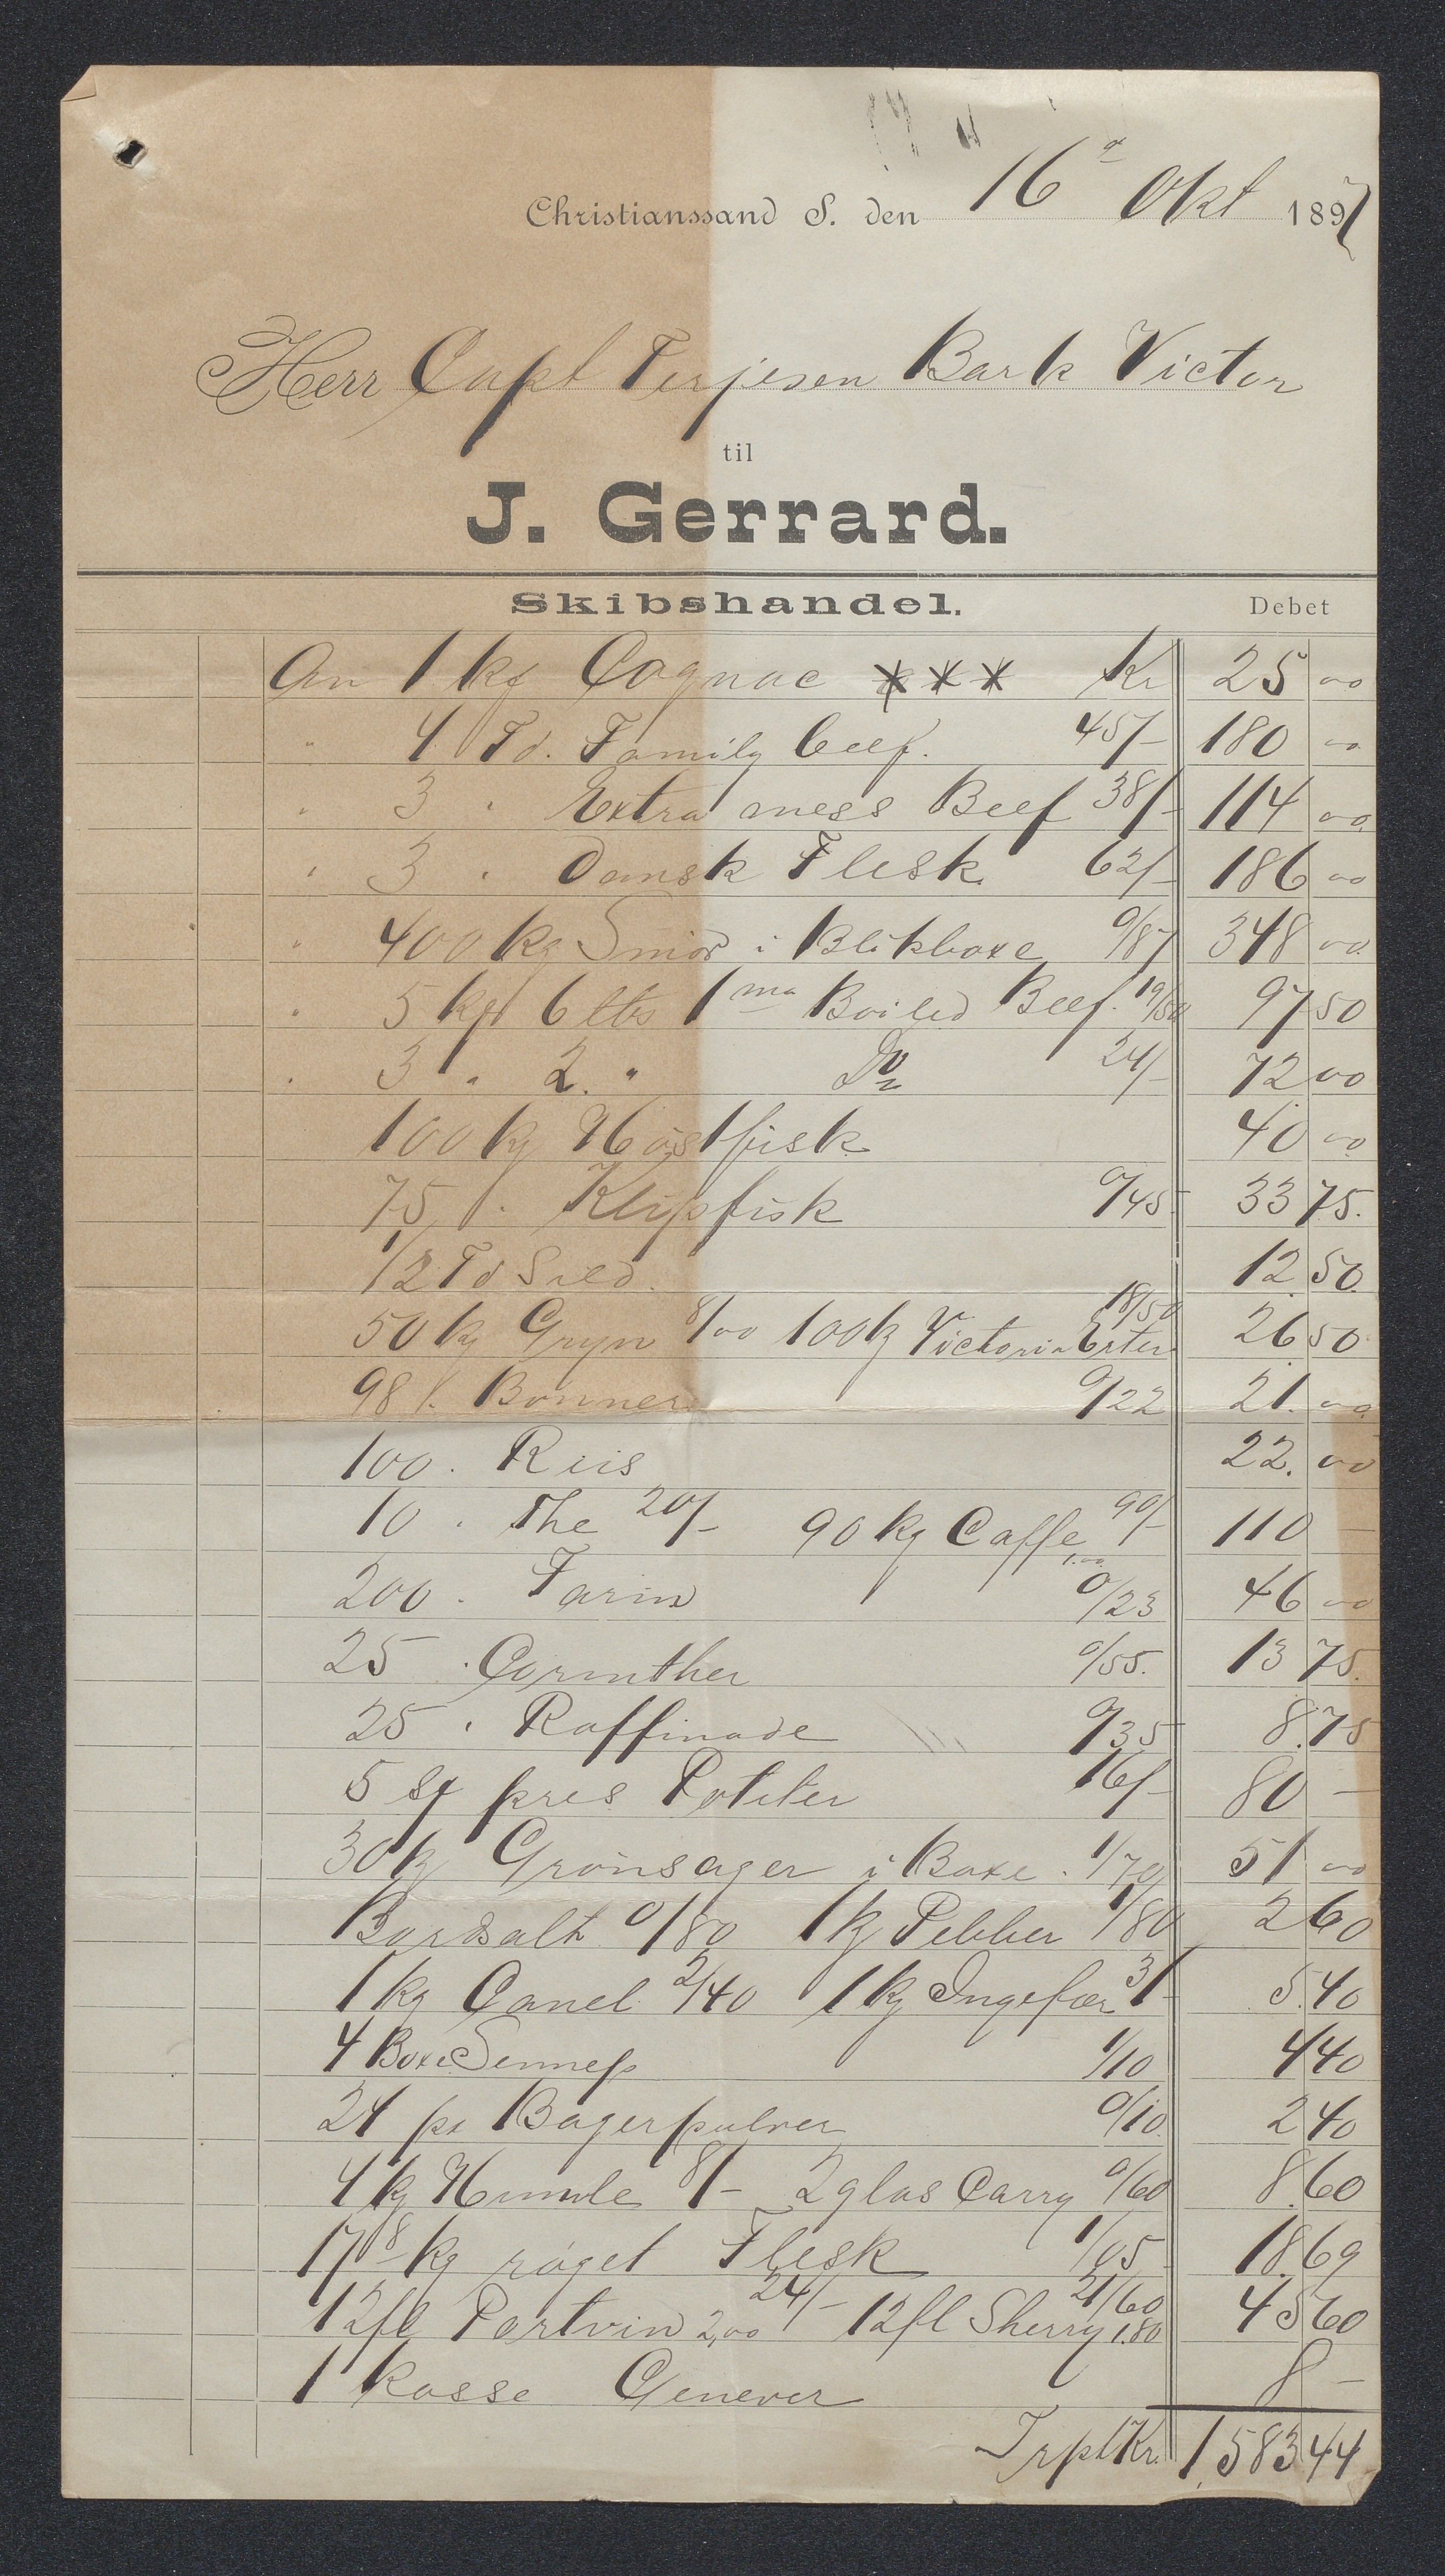 Christianssand S. den 16de Okt 1897
Herr Capt Terjesen Bark Victor
til
J. Gerrard.
Skibshandel. Debet
An 1 ks Cognac *** Kr 25 00
" 4 Td. Family beef. 45/- 180 00
" 3 " Extra mess Beef 38/- 114 00
" 3 " Dansk Flesk 62/- 186 00
" 400 kg Smör i Blikboxe 0/87 348 00
" 5 ks 6 lbs 1ma Boiled Beef. 19/50 97 50
" 3 " 2 " Do 24/- 72 00
100 kg Höstfisk 40 00
75 " Klipfisk 0/45 33 75
1/2 Td Sild 12 50
50 kg Gryn 8/00 100 kg Victoria Erter 18/50 26 50
98 " Bonner 0/22 21 00
100 " Reis 22 00
10 " The 20/- 90 kg Caffe 1.00 90/- 110 -
200 " Farin 0/23 46 00
25 " Corinther 0/55 13 75
25 " Raffinade 0/35 8 75
5 st pres Poteter 16/- 80 -
30 kg Grönsager i Boxe 1/70 51 00
Bordsalt 0/80 1 kg Pebber 1/80 2 60
1 kg Canel 2/40 1 kg Ingefær 3/- 5 40
4 Boxe Sennep 1/10 4 40
24 pk Bagerpulver 0/10 2 40
4 kg Humle 8/- 2 glas Carry 0/60 8 60
17 8 kg röget Flesk 1/05 18 69
12 fl Portvin 2,00 24/- 12 fl Sherry 1.80 21/60 45 60
1 kasse Genever 8 -
Trpt Kr. 1,583 44